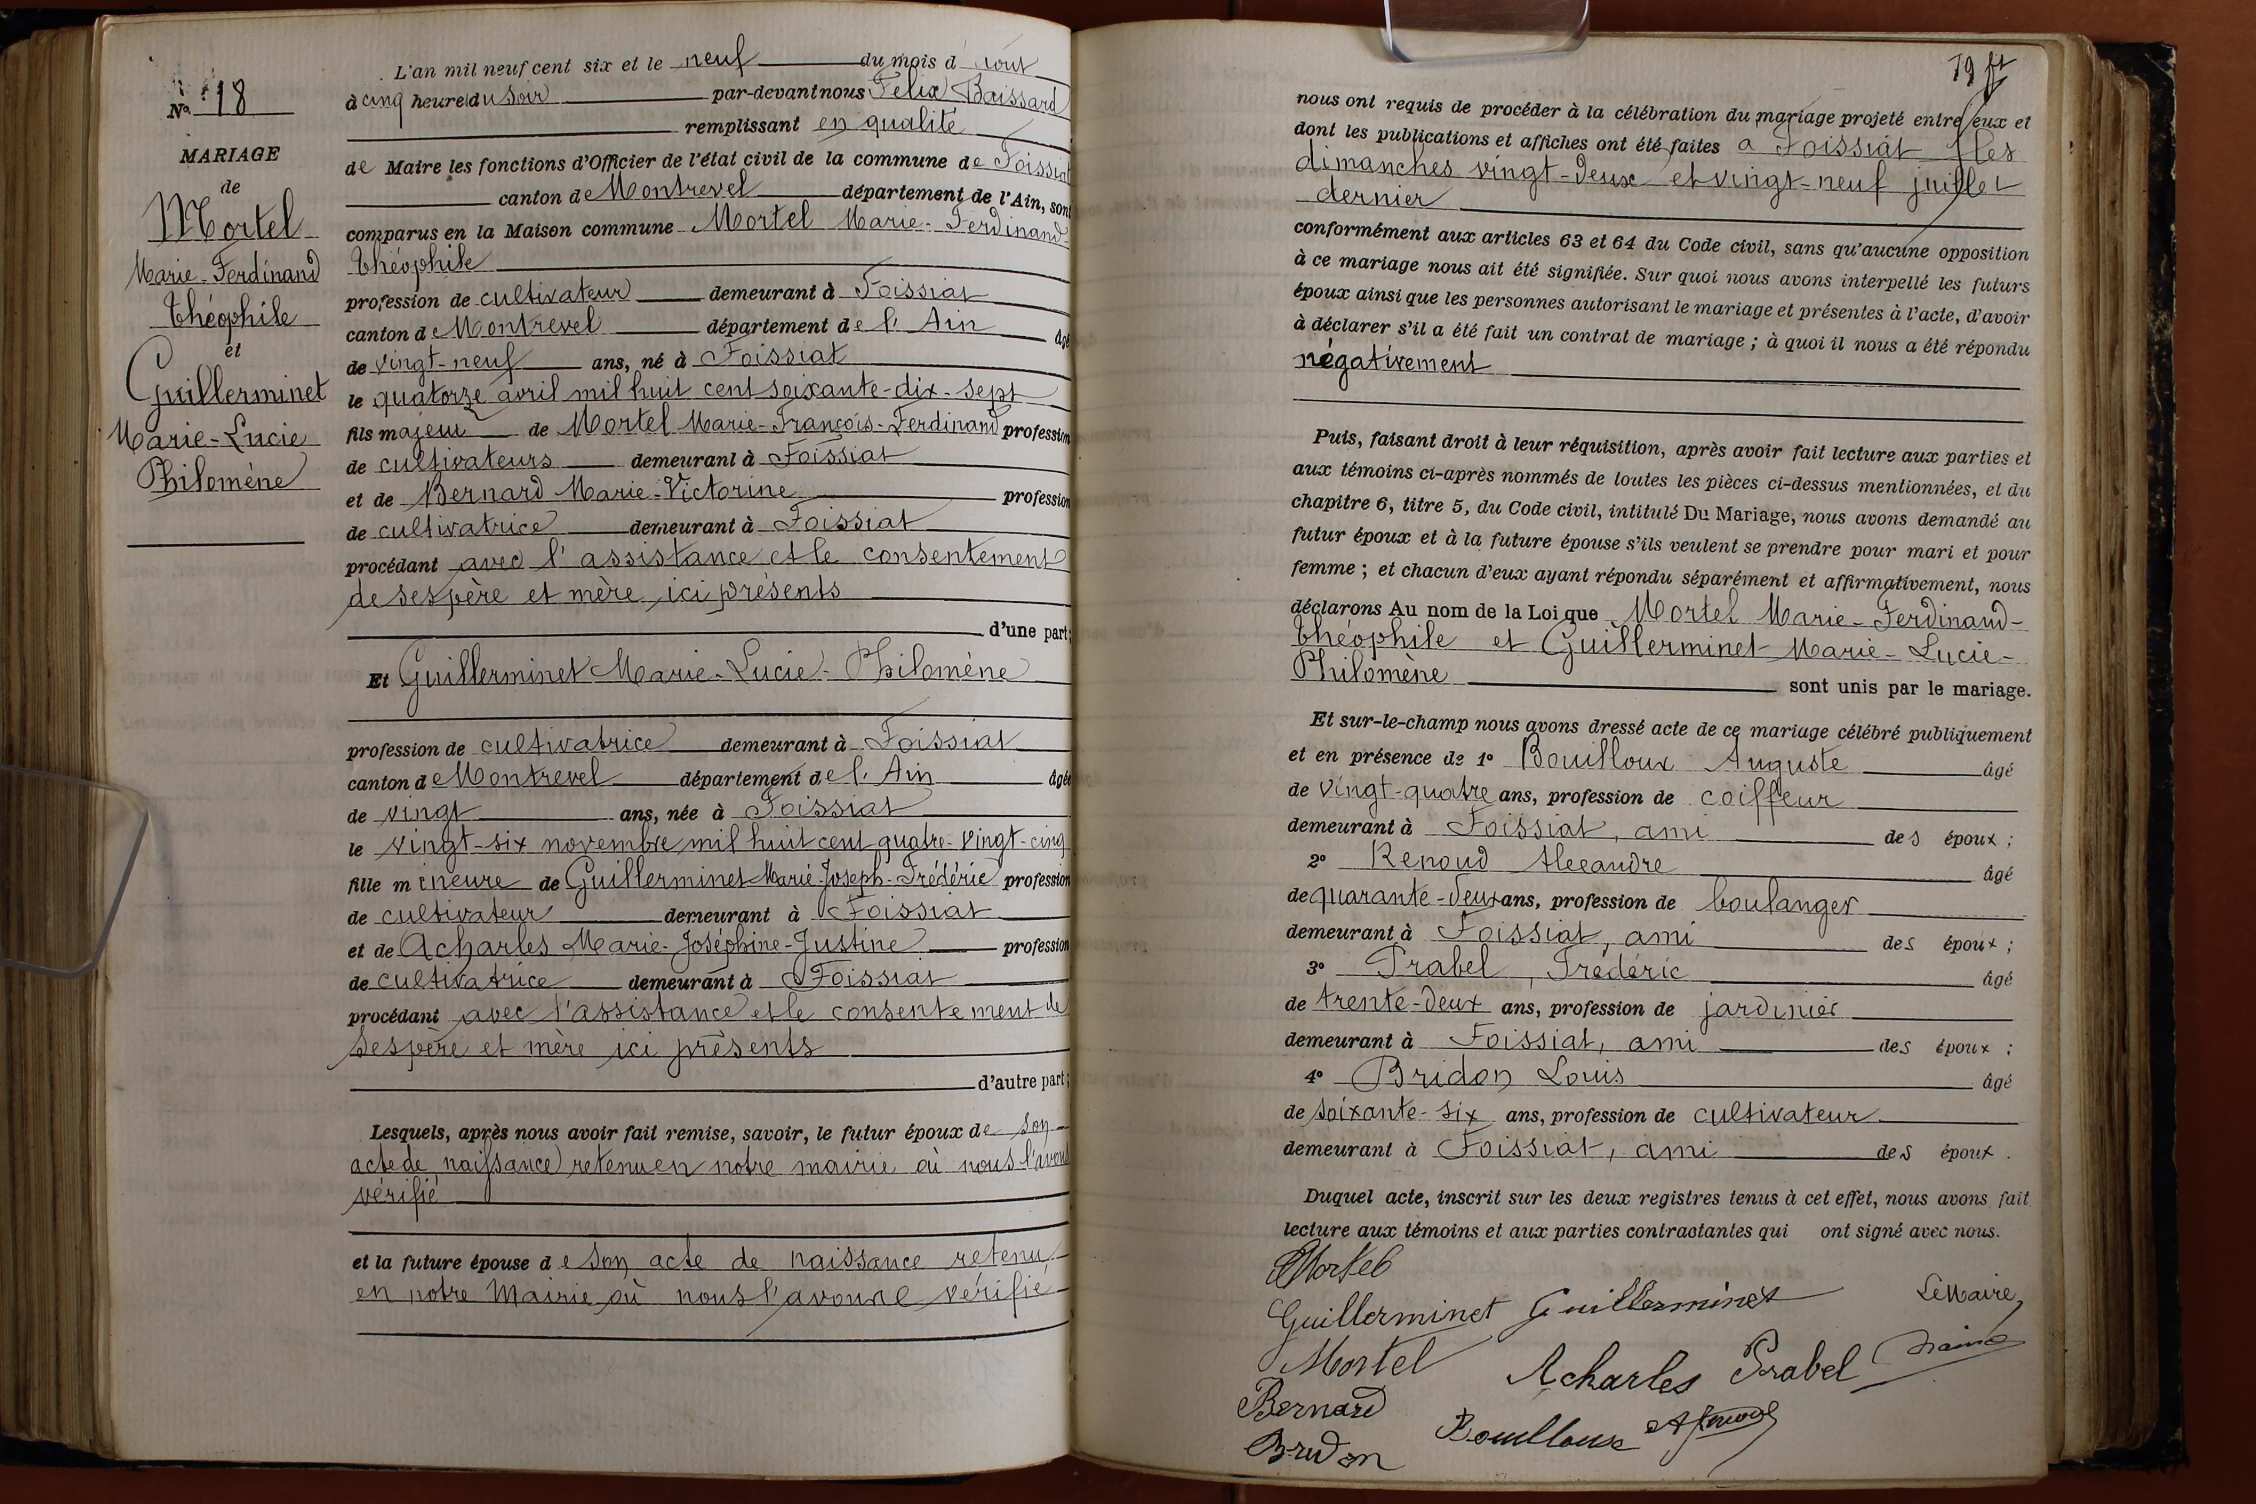 Nº 18
MARIAGE
de
Mortel
Marie-Ferdinand
Théophile
et
Guillerminet
Marie-Lucie
Philomène
L'an mil neuf cent six et le neuf du mois d'aout
à cinq heures du soir par-devant nous Felix
remplissant en qualité
de Maire les fonctions d'Officier de l'état civil de la commune de Foissiat
canton de Montrevel département de l'Ain, sont
comparus en la Maison commune Mortel Marie-Ferdinand-
Théophile
profession de cultivateur demeurant à Foissiat
canton de Montrevel département de l'Ain âgé
de vingt-neuf ans, né à Foissiat
le quatorze avril mil huit cent soixante-dix-sept
fils majeur de Mortel Marie-François-Ferdinand profession
de cultivateurs demeurant à Foissiat
et de Bernard Marie-Victorine profession
de cultivatrice demeurant à Foissiat
procédant avec l'assistance et le consentement
de ses père et mère ici présents
d'une part;
Et Guillerminet Marie-Lucie-Philomène
profession de cultivatrice demeurant à Foissiat
canton de Montrevel département de l'Ain âgée
de vingt ans, née à Foissiat
le vingt-six novembre mil huit cent quatre-vingt-cinq
fille mineure de Guillerminet Marie-Joseph-Frédéric profession
de cultivateur demeurant à Foissiat
et de Acharles Marie-Joséphine-Justine profession
de cultivatrice demeurant à Foissiat
procédant avec l'assistance et le consentement de
ses père et mère ici présents
d'autre part;
Lesquels, après nous avoir fait remise, savoir, le futur époux de son
acte de naissance retenu en notre mairie où nous l'avons
vérifié
et la future épouse de son acte de naissance retenu
en notre Mairie où nous l'avons vérifié
79
nous ont requis de procéder à la célébration du mariage projeté entre eux et
dont les publications et affiches ont été faites a Foissiat les
dimanches vingt-deux et vingt-neuf juillet
dernier
conformément aux articles 63 et 64 du Code civil, sans qu'aucune opposition
à ce mariage nous ait été signifiée. Sur quoi nous avons interpellé les futurs
époux ainsi que les personnes autorisant le mariage et présentes à l'acte, d'avoir
à déclarer s'il a été fait un contrat de mariage ; à quoi il nous a été répondu
négativement
Puis, faisant droit à leur réquisition, après avoir fait lecture aux parties et
aux témoins ci-après nommés de toutes les pièces ci-dessus mentionnées, et du
chapitre 6, titre 5, du Code civil, intitulé Du Mariage, nous avons demandé au
futur époux et à la future épouse s'ils veulent se prendre pour mari et pour
femme ; et chacun d'eux ayant répondu séparément et affirmativement, nous
déclarons Au nom de la Loi que Mortel Marie-Ferdinand-
Théophile et Guillerminet Marie-Lucie-
Philomène sont unis par le mariage.
Et sur-le-champ nous avons dressé acte de ce mariage célébré publiquement
et en présence de 1º Bouilloux Auguste âgé
de vingt-quatre ans, profession de coiffeur
demeurant à Foissiat, ami des époux ;
2º Renoud Alexandre âgé
de quarante-deux ans, profession de boulanger
demeurant à Foissiat, ami des époux ;
3º Prabel, Frédéric âgé
de trente-deux ans, profession de jardinier
demeurant à Foissiat, ami des époux ;
4º Bridon Louis âgé
de soixante-six ans, profession de cultivateur
demeurant à Foissiat, ami des époux.
Duquel acte, inscrit sur les deux registres tenus à cet effet, nous avons fait
lecture aux témoins et aux parties contractantes qui ont signé avec nous.
Mortel
Guillerminet Guillerminet Le Maire
Mortel Acharles Prabel
Bernard Bouilloux
Bridon